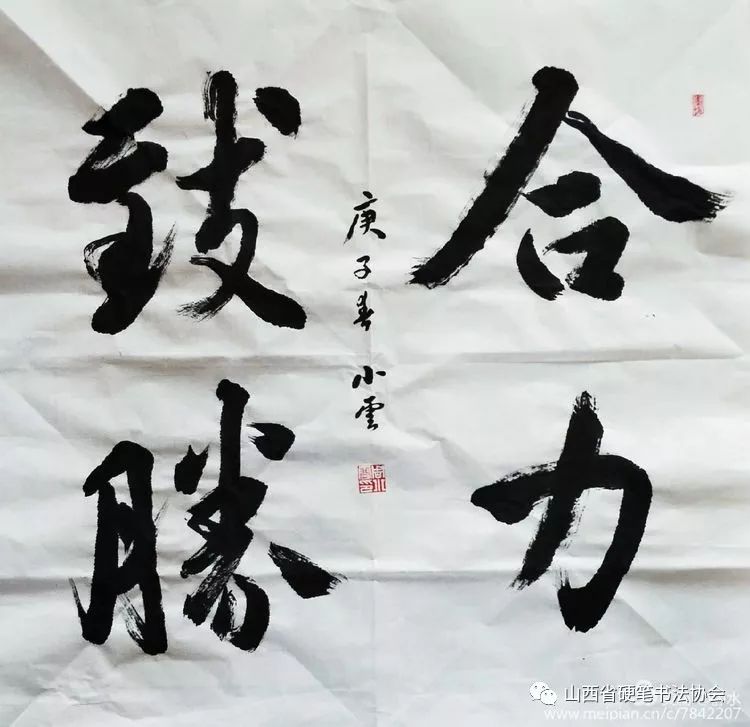 合力
致勝
庚子春 小雲
山西省硬笔书法协会
www.meipian.cn/c/7842207